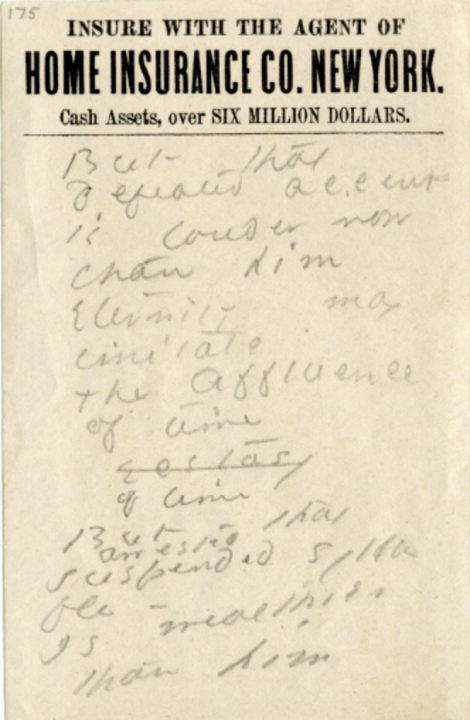 175
INSURE WITH THE AGENT OF
HOME INSURANCE CO. NEW YORK.
Cash Assets, over SIX MILLION DOLLARS.
But that
defeated accent
is louder now
than him
Eternity may
imitate
the Affluence
of time
ecstasy
of time
But that
arrested
suspended sylla
ble -
Is wealthier
than him